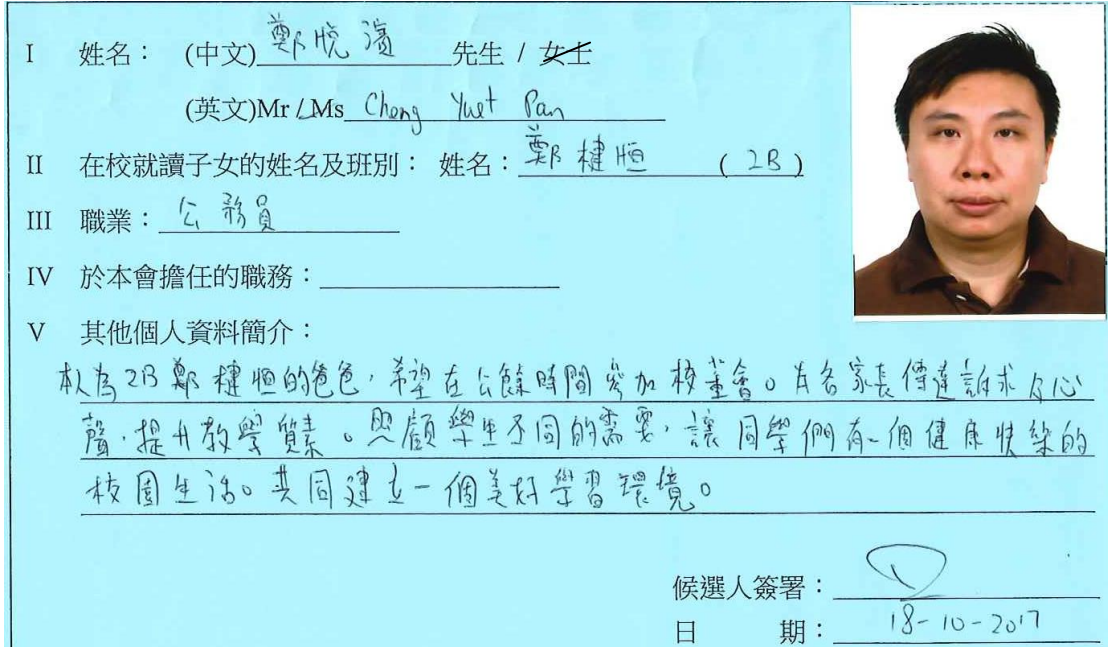 I 姓名： (中文) 鄭悅濱 先生 / 女士
(英文)Mr / Ms Cheng Yuet Pan
II 在校就讀子女的姓名及班別： 姓名：鄭棣恒 ( 2B )
III 職業：公務員
IV 於本會擔任的職務：
V 其他個人資料簡介：
本人為2B鄭棣恒的爸爸，希望在公餘時間參加校董會。為各家長傳達訴求及心
聲，提升教學質素。照顧學生不同的需要，讓同學們有一個健康快樂的
校園生活。共同建立一個美好學習環境。
候選人簽署：
日 期：18-10-2017